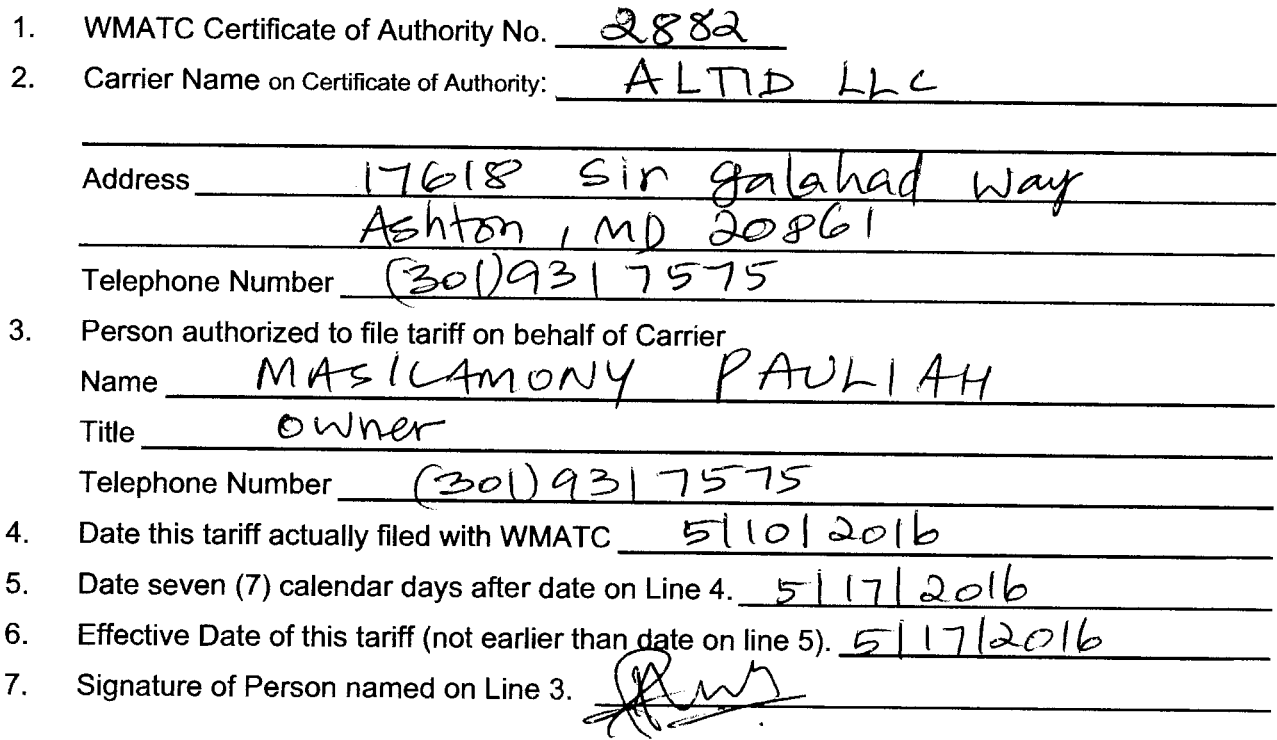 1. WMATC Certificate of Authority No. 2882
2. Carrier Name on Certificate of Authority: ALTID LLC
Address 17618 Sir galahad Way
Ashton, MD 20861
Telephone Number (301)931 7575
3. Person authorized to file tariff on behalf of Carrier
Name MASILAMONY PAULIAH
Title Owner
Telephone Number (301)931 7575
4. Date this tariff actually filed with WMATC 5|10|2016
5. Date seven (7) calendar days after date on Line 4. 5|17|2016
6. Effective Date of this tariff (not earlier than date on line 5). 5|17|2016
7. Signature of Person named on Line 3.